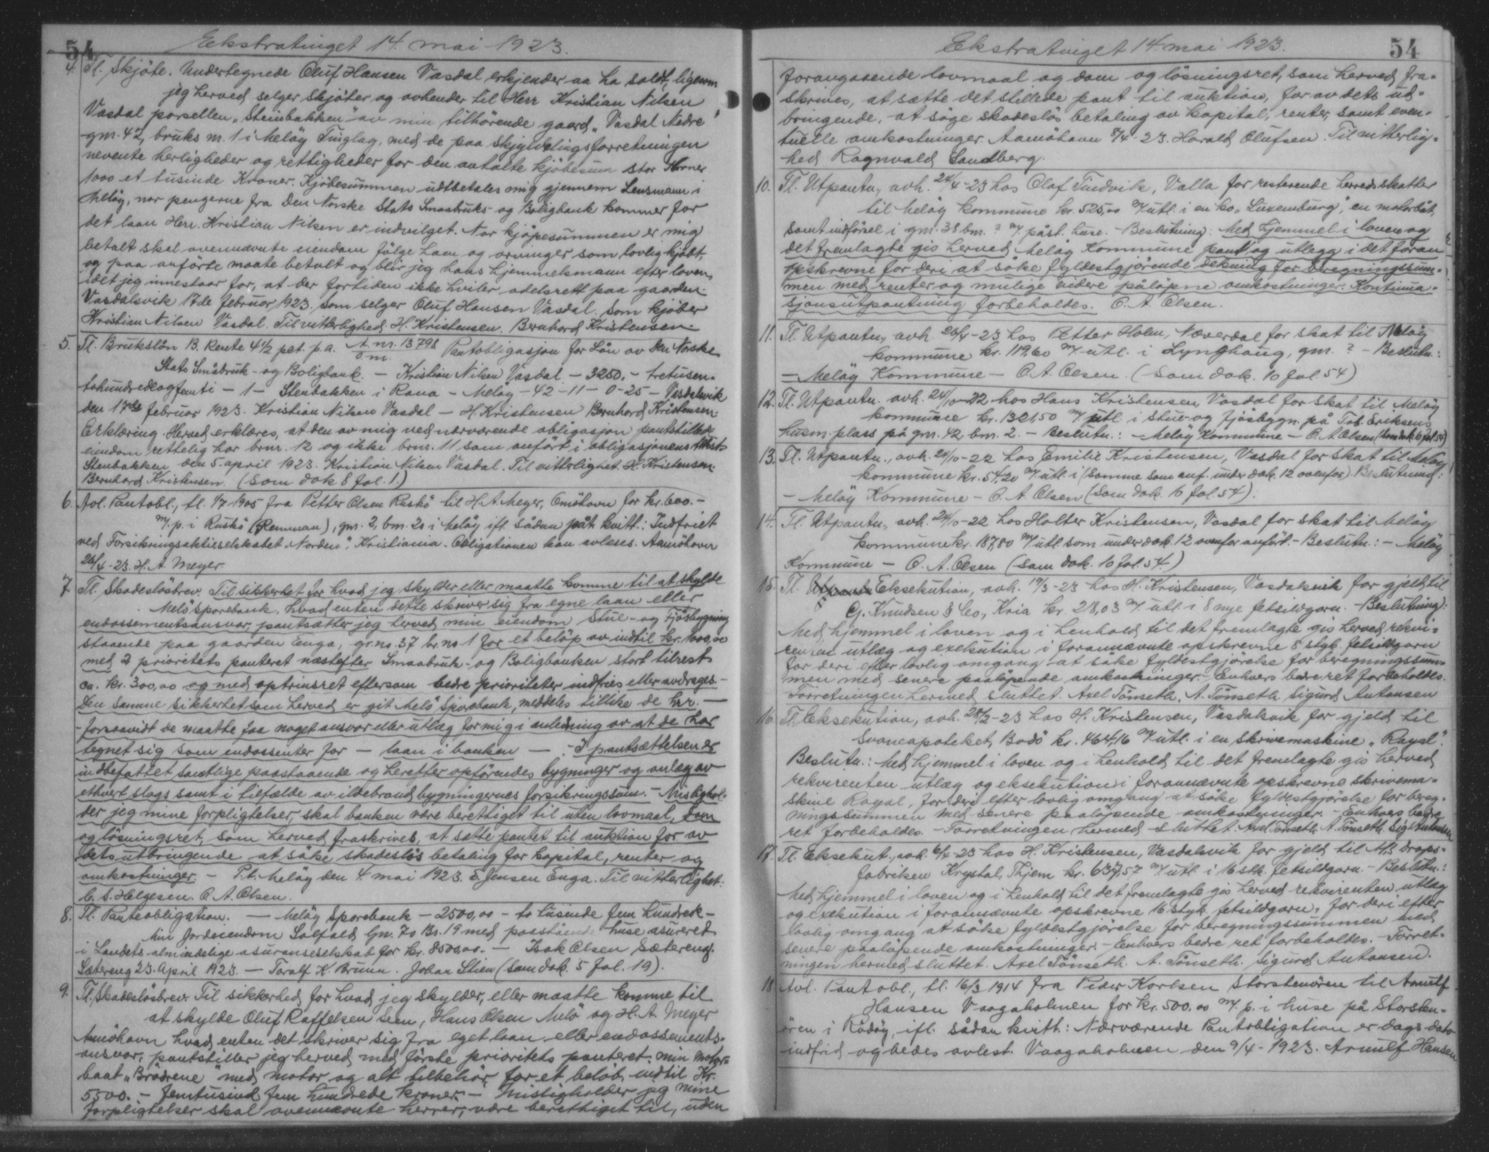 54
Ekstratinget 14. mai 1923.
4. Tl. Skjöte. Undertegnede Oluf Hansen Vasdal, erkjender aa ha solgt, ligesom
jeg herved selger skjöter og avhender til Herr Kristian Nilsen
Vasdal parsellen "Stenbakken" av min tilhörende gaard "Vasdal Nedre"
gnr. 42, bruks nr. 1 i Melöy Tinglag, med de paa Skyldelingsforretningen
nevnte herligheder og rettigheder for den avtalte kjöbesum stor Kroner
1000 et tusinde Kroner. Kjöbesummen udbetales mig gjennem Lensmann i
Melöy, nor pengerne fra Den Norske Stats Smaabruks- og Boligbank kommer for
det laan Herr Kristian Nilsen er indvilget. Nor kjöpesummen er mig
betalt skal ovennævnte eiendom fölge ham og arvinger som lovlig kjöbt
og paa anförte maate betalt og blir jeg hans hjemmelsmann efter loven,
idet jeg innestaar for, at der fortiden ikke hviler odelsrett paa gaarden.
Vasdalsvik 17de februar 1923. som selger Oluf Hansen Vasdal. Som kjöber
Kristian Nilsen Vasdal. Til vitterlighed H. Kristensen. Bernhard Kristensen
5. Tl. Brukslån B. Rente 4½ pct. p.a. A nr. 13798 Pantobligasjon for Lån av Den Norske
Stats Småbruk- og Boligbank. — Kristian Nilsen Vasdal — 3250.- tretusen-
tohundredeogfemti — 1 — Stenbakken i Rana — Meløy — 42 — 11 — 0-25 — Vasdalsvik
den 17de februar 1923. Kristian Nilsen Vasdal — H Kristensen Bernhard Kristensen
Erklæring. Herved erklæres, at den av mig ved nærværende obligasjon pantstillede
eiendom rettelig har brnr. 12 og ikke brnr. 11 som anfört i obligasjonens tekst.
Stenbakken den 5. april 1923. Kristian Nilsen Vasdal. Til vitterlighet: H. Kristensen.
Bernhard Kristensen. (som dok 8 fol. 1)
6. Avl. Pantobl., tl. 1905 fra Petter Olsen Reskö til H. A Meyer, Omöhavn for kr. 600.-
m/p. i Reskö (Remman), gnr. 2, bnr. 20 i Melöy ifl. sådan påt. kvitt.: Indfriet
ved Forsikringsaktieselskabet "Norden", Kristiania. Obligationen kan avleses. Aamöhavn
24/4-23. H. A Meyer
7. Tl. Skadeslösbrev. Til sikkerhet for hvad jeg skylder eller maatte komme til at skylde
Melö Sparebank, hvad enten dette skriver sig fra egne laan eller
endossementsansvar, pantsætter jeg herved min eiendom Stue- og Fjösbygning
staaende paa gaarden Enga, gr.no. 37 br.no 1 for et belöp av indtil kr. 1000,00
med 2 prioritets panteret næstefter Smaabruk- og Boligbanken stort tilrest
ca. kr. 300,00 og med optrinsret eftersom bedre prioriteter indfries eller avdrages. —
Den samme sikkerhet som herved er git Melö Sparebank, meddeles tillike de hr. —
- forsaavidt de maatte faa noget ansvar eller utlæg for mig i anledning av at de har
tegnet sig som endossenter for — laan i banken — . - I pantsættelsen er
indbefattet samtlige paastaaende og herefter opförendes bygninger og anlæg av
ethvert slags samt i tilfælde av ildebrand bygningernes forsikringssum. — Mislighol-
der jeg mine forpligtelser, skal banken være berettiget til uten lovmaal, dom
og lösningsret, som herved fraskrives, at sætte pantet til auktion for av
dets utbringende at söke skadeslös betaling for kapital, renter og
omkostninger. — P.t. Melöy den 4 mai 1923. E Jensen Enga. Til vitterlighet:
C. S. Helgesen. O. A. Olsen.
8. Tl. Panteobligation. — Melöy Sparebank — 2500,00 — to tusinde fem hundrede —
min Jordeiendom Solfald, Gn. 70 Bs. 19 med paastaaende huse assureret
i Landets almindelige assuranseselskab for kr. 8500,00. — Isak Olsen Sætereng.
Sætereng 23. April 1923. — Toralf K Bruun. Johan Stien (som dok. 5 fol. 19).
9. Tl. Skadeslösbrev. Til sikkerhed for hvad jeg skylder, eller maatte komme til
at skylde Oluf Raffelsen sen, Hans Olsen Melö og H. A. Meyer
Amöhavn hvad enten det skriver sig fra eget laan eller endossements-
ansvar, pantstiller jeg herved med förste prioritets panteret min motor-
baat "Brödrene" med motor og alt tilbehör for et beløb indtil Kr.
5500. — femtusind fem hundrede kroner. — Misligholder jeg mine
forpligtelser skal ovennævnte herrer, være berettiget til, uden
54
Ekstratinget 14 mai 1923.
forangaaende lovmaal og dom og lösningsret, som herved fra-
skrives, at sætte det stillede pant til auktion, for av dets ud-
bringende, at söge skadeslös betaling av kapital, renter, samt even-
tuelle omkostninger. Aamöhavn 9/4-23. Harald Olufsen. Til vitterlig-
hed Ragnvald Sandberg.
10. Tl. Utpantn., avh. 24/4-23 hos Olaf Tindvik, Valla for resterende herredsskatter
til Melöy kommune kr. 525,00 m/utl. i en ko "Luxemburg", en motorbåt,
samt indförsel i gnr. 38 bnr. ? m/ påst. huse. - Beslutning: Med hjemmel i loven og
det fremlagte gis herved Melöy Kommune pant og utlegg i det foran
opskrevne for deri at söke fyldestgjörende dekning for beregningssum-
men med renter og mulige videre påløpne omkostninger. Kontinua-
sjonsutpantning forbeholdes. O. A. Olsen.
11. Tl. Utpantn., avh. 24/4-23 hos Petter Holm, Næverdal for skat til Meløy
kommune kr. 119,60 m/utl. i Lynghaug, gnr. ? — Beslutn.:
— Meløy Kommune — O. A. Olsen (som dok. 10 fol 54)
12. Tl. Utpantn. avh. 24/10-22 hos Hans Kristensen Vasdal for skat til Meløy
kommune kr. 132,50 m/utl i stue og fjøsbygn. på Tob. Eriksens
husm.plass på gnr. 42 bnr. 2. — Beslutn.: — Meløy Kommune — O. A. Olsen (som dok. 10 fol 54)
13. Tl. Utpantn., avh. 24/10-22 hos Emilie Kristensen, Vasdal for skat til Meløy
kommune kr. 54,20 m/utl i (samme som anf. under dok. 12 ovenfor) Beslutning:
— Meløy Kommune — O. A. Olsen (som dok. 10 fol 54).
14. Tl Utpantn., avh. 24/10-22 hos Holter Kristensen, Vasdal for skat til Meløy
kommune kr. 187,80 m/utl som under dok. 12 ovenfor anfört — Beslutn.: — Meløy
Kommune — O. A. Olsen (som dok. 10 fol. 54)
15. Tl. Eksekution, avh. 17/3-23 hos H. Kristensen, Vasdalsvik for gjeld til
Cj. Knudsen & Co, Kria kr. 28,03 m/utl i 8 nye fetsildgarn. — Beslutning:
Med hjemmel i loven og i henhold til det fremlagte gis herved rekvi-
renten utlæg og exekution i forannævnte opskrevne 8 styk. fetsildgarn
for deri efter lovlig omgang at söke fyldestgjörelse for beregningssum-
men med senere paaløpende omkostninger. Enhvers bedre ret forbeholdes.
Forretningen hermed sluttet. Axel Tönseth. A. Tönseth. Sigurd Antonsen
16. Tl. Eksekution, avh. 28/3-23 hos H. Kristensen, Vasdalsvik for gjeld til
Svaneapoteket, Bodö kr. 464,16 m/utl. i en skrivemaskine "Royal".
Beslutn.: Med hjemmel i loven og i henhold til det fremlagte gis herved
rekvirenten utlæg og eksekution i forannævnte opskrevne skrivema-
skine Royal, for deri efter lovlig omgang at söke fyldestgjörelse for bereg-
ningssummen med senere paalöpende omkostninger. Enhvers bedre
ret forbeholdes. — Forretningen hermed sluttet. Axel Tönseth. A. Tönseth. Sigurd Antonsen
17. Tl. Eksekut., avh. 6/4-23 hos H. Kristensen, Vasdalsvik for gjeld til A/S. Drops-
fabriken Krystal, Thjem kr. 637,57 m/utl i 16 stk. fetsildgarn — Beslutn.:
Med hjemmel i loven og i henhold til det fremlagte gis herved rekvirenten utlæg
og exekution i forannævnte opskrevne 16 styk fetsildgarn, for deri efter
lovlig omgang at söke fyldestgjörelse for beregningssummen med
senere paalöpende omkostninger. Enhvers bedre ret forbeholdes. — Forret-
ningen hermed sluttet. Axel Tönseth. A. Tönseth. Sigurd Antonsen.
18. Avl. Pantobl., tl. 16/3 1914 fra Peder Karlsen Storstenören til Arnulf
Hansen Vaagaholmen for kr. 500,00 m/p. i huse på Storsten-
ören i Rödöy, ifl. sådan kvitt.: Nærværende Pantobligation er dags dato
indfrid og bedes avlest. Vaagaholmen den 9/4 - 1923. Arnulf Hansen